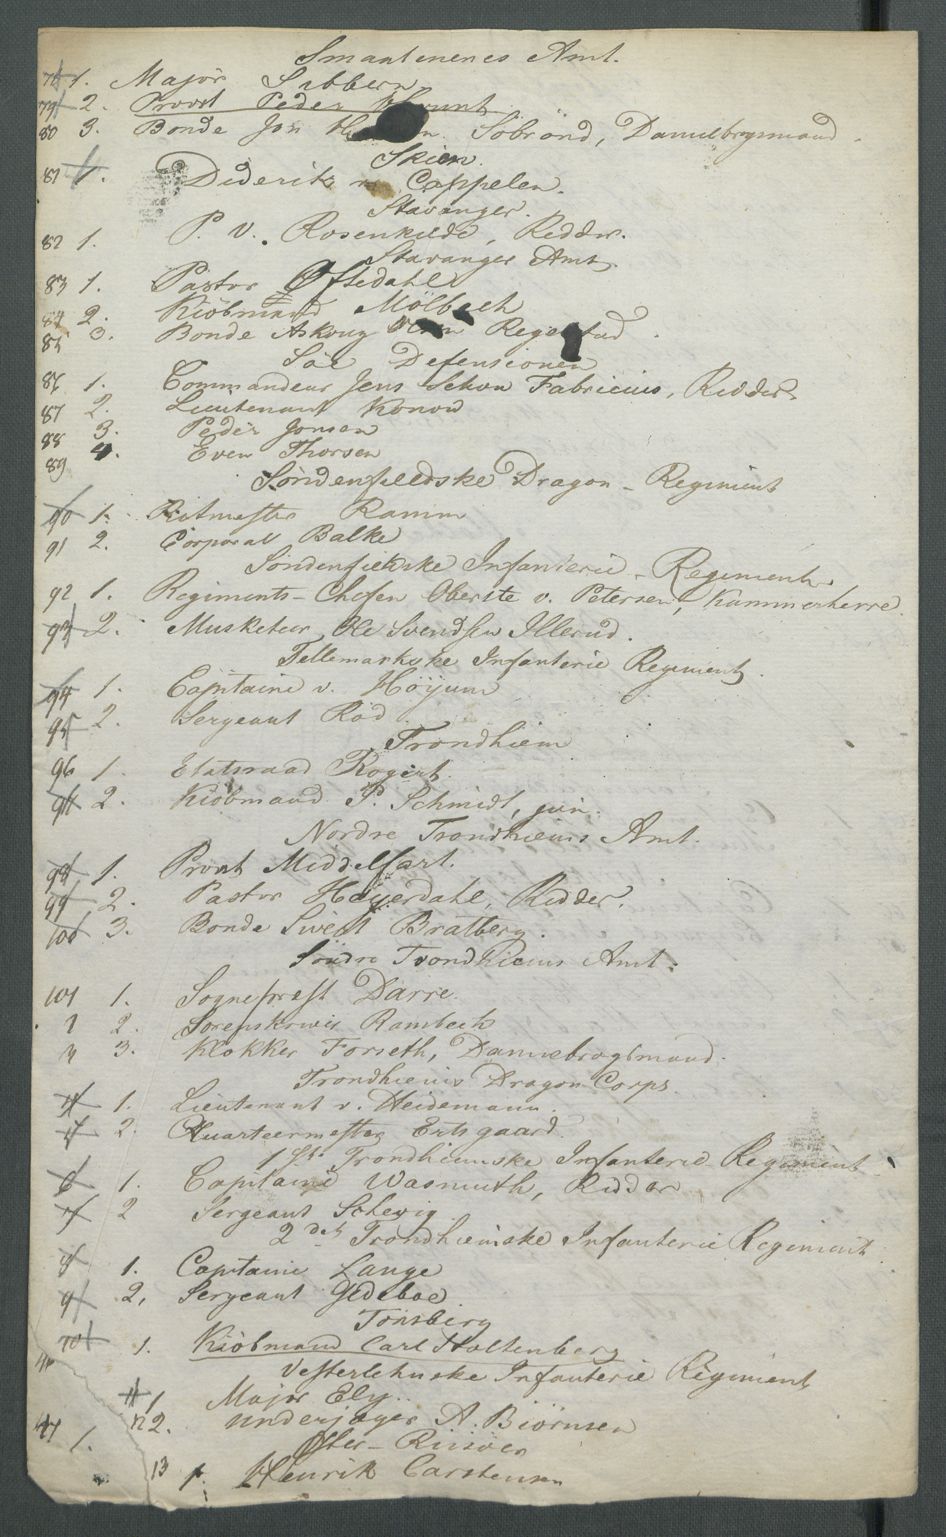 Smaalenenes Amt.
78 1. Major Sibbern
79 2. Provst Peder Hount
80 3. Bonde Jon Söbrönd, Dannebrogsmand.
Skien.
81 1. Diderik v. Cappelen.
Stavanger.
82 1. P. v. Rosenkilde, Ridder.
Stavanger Amt.
83 1. Pastor Oftedahl
84 2. Kiöbmand Mölbach
85 3. Bonde Askoug Regelstad.
Söe Defensionen
86 1. Commandeur Jens Schow Fabricius, Ridder.
87 2. Lieutenant Konow
88 3. Peder Jonsen
89 4. Even Thorsen
Söndenfieldske Dragon-Regiment
90 1. Ritmester Ramm
91 2. Corporal Balke
Söndenfieldske Infanterie-Regiment.
92 1. Regiments-Chefen Oberste v. Petersen, Kammerherre.
93 2. Musketeer Ole Svendsen Illerud.
Tellemarkske Infanterie Regiment.
94 1. Capitaine v. Höyum
95 2. Sergeant Röd
Trondhiem
96 1. Etatsraad Rogert.
97 2. Kiöbmand P. Schmidt, jun.
Nordre Trondhiems Amt.
98 1. Provst Middelfart.
99 2. Pastor Heyerdahl, Ridder.
100 3. Bonde Sivert Bratberg.
Söndre Trondhiems Amt.
101 1. Sognepræst Darre.
2. Sorenskriver Rambech
3 3. Klokker Forseth, Dannebrogsmand.
Trondhiems Dragon-Corps.
4 1. Lieutenant v. Heidemann.
5 2. Quarteermester Ertsgaard.
1ste Trondhiemske Infanterie-Regiment
6 1. Capitaine Wasmuth, Ridder
7 2 Sergeant Schevig
2det Trondhiemske Infanterie Regiment
8 1. Capitaine Lange
9 2. Sergeant Gedeboe
Tönsberg
10 1. Kiöbmand Carl Stoltenberg
Vesterlehnske Infanterie Regiment
11 1 Major Ely.
12 2. Underjæger A. Biörnsen
Öster-Riisöer
47 1.
13 1. Henrik Carstensen